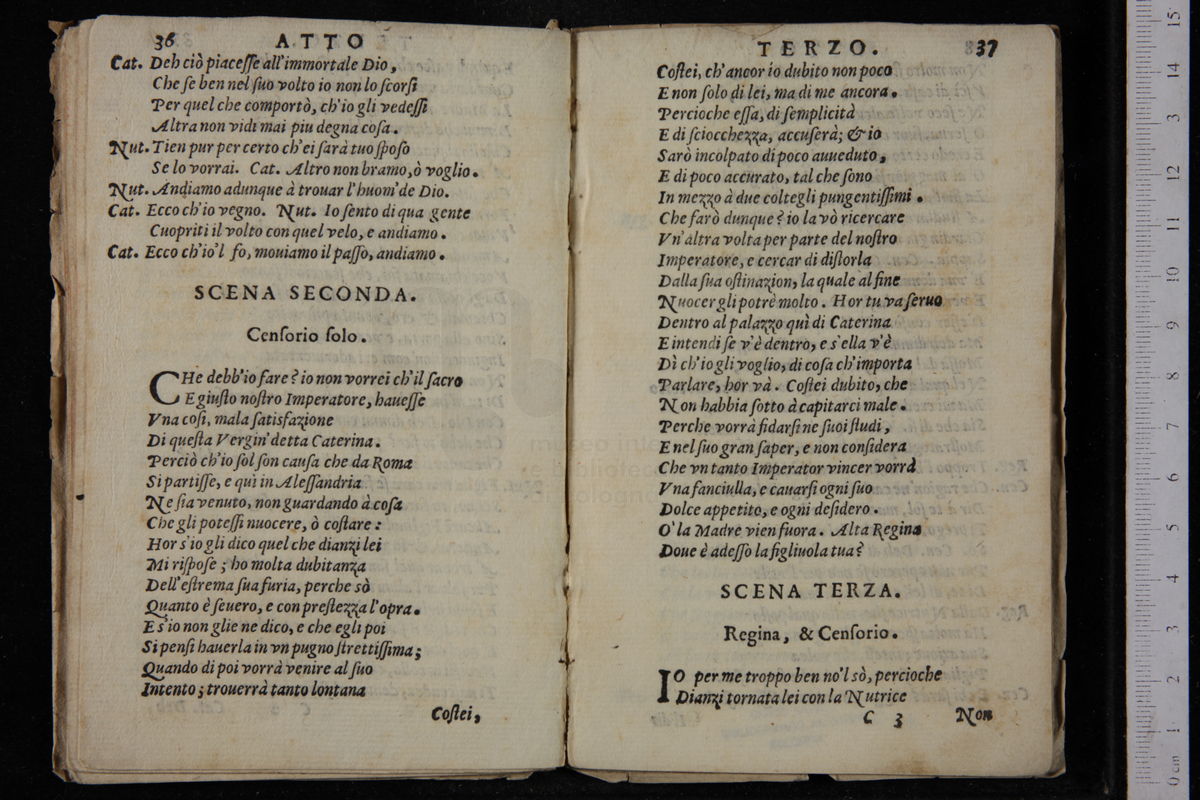 36 ATTO
Cat. Deh ciò piacesse all'immortale Dio,
Che se ben nel suo volto io non lo scorsi
Per quel che comportò, ch'io gli vedessi
Altra non vidi mai piu degna cosa.
Nut. Tien pur per certo ch'ei sarà tuo sposo
Se lo vorrai. Cat. Altro non bramo, ò voglio.
Nut. Andiamo adunque à trouar l'huom' de Dio.
Cat. Ecco ch'io vegno. Nut. Io sento di qua gente
Cuopriti il volto con quel velo, e andiamo.
Cat. Ecco ch'io'l fo, mouiamo il passo, andiamo.
SCENA SECONDA.
Censorio solo.
CHe debb'io fare? io non vorrei ch'il sacro
E giusto nostro Imperatore, hauesse
Vna cosi, mala satisfazione
Di questa Vergin' detta Caterina.
Perciò ch'io sol son causa che da Roma
Si partisse, e quì in Alessandria
Ne sia venuto, non guardando à cosa
Che gli potessi nuocere, ò costare:
Hor s'io gli dico quel che dianzi lei
Mi rispose; ho molta dubitanza
Dell'estrema sua furia, perche sò
Quanto è seuero, e con prestezza l'opra.
E s'io non glie ne dico, e che egli poi
Si pensi hauerla in vn pugno strettissima;
Quando di poi vorrà venire al suo
Intento; trouerrà tanto lontana
Costei,
TERZO. 37
Costei, ch'ancor io dubito non poco
E non solo di lei, ma di me ancora.
Percioche essa, di semplicità
E di sciocchezza, accuserà; & io
Sarò incolpato di poco auueduto,
E di poco accurato, tal che sono
In mezzo à due coltegli pungentissimi.
Che farò dunque? io la vò ricercare
Vn'altra volta per parte del nostro
Imperatore, e cercar di distorla
Dalla sua ostinazion, la quale al fine
Nuocer gli potrè molto. Hor tu va seruo
Dentro al palazzo quì di Caterina
E intendi se v'è dentro, e s'ella v'è
Dì ch'io gli voglio, di cosa ch'importa
Parlare, hor và. Costei dubito, che
Non habbia sotto à capitarci male.
Perche vorrà fidarsi ne suoi studi,
E nel suo gran saper, e non considera
Che vn tanto Imperator vincer vorrà
Vna fanciulla, e cauarsi ogni suo
Dolce appetito, e ogni desidero.
O' la Madre vien fuora. Alta Regina
Doue è adesso la figliuola tua?
SCENA TERZA.
Regina, & Censorio.
IO per me troppo ben no'l sò, percioche
Dianzi tornata lei con la Nutrice
C 3 Non